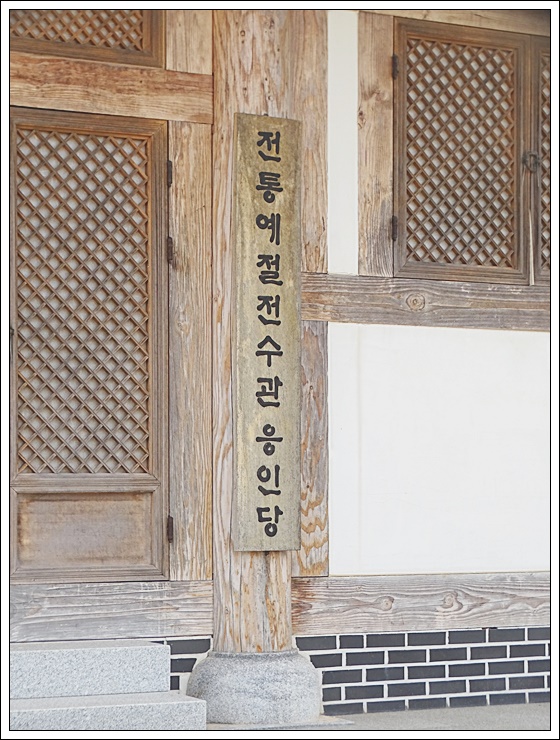 전통예절전수관 응인당